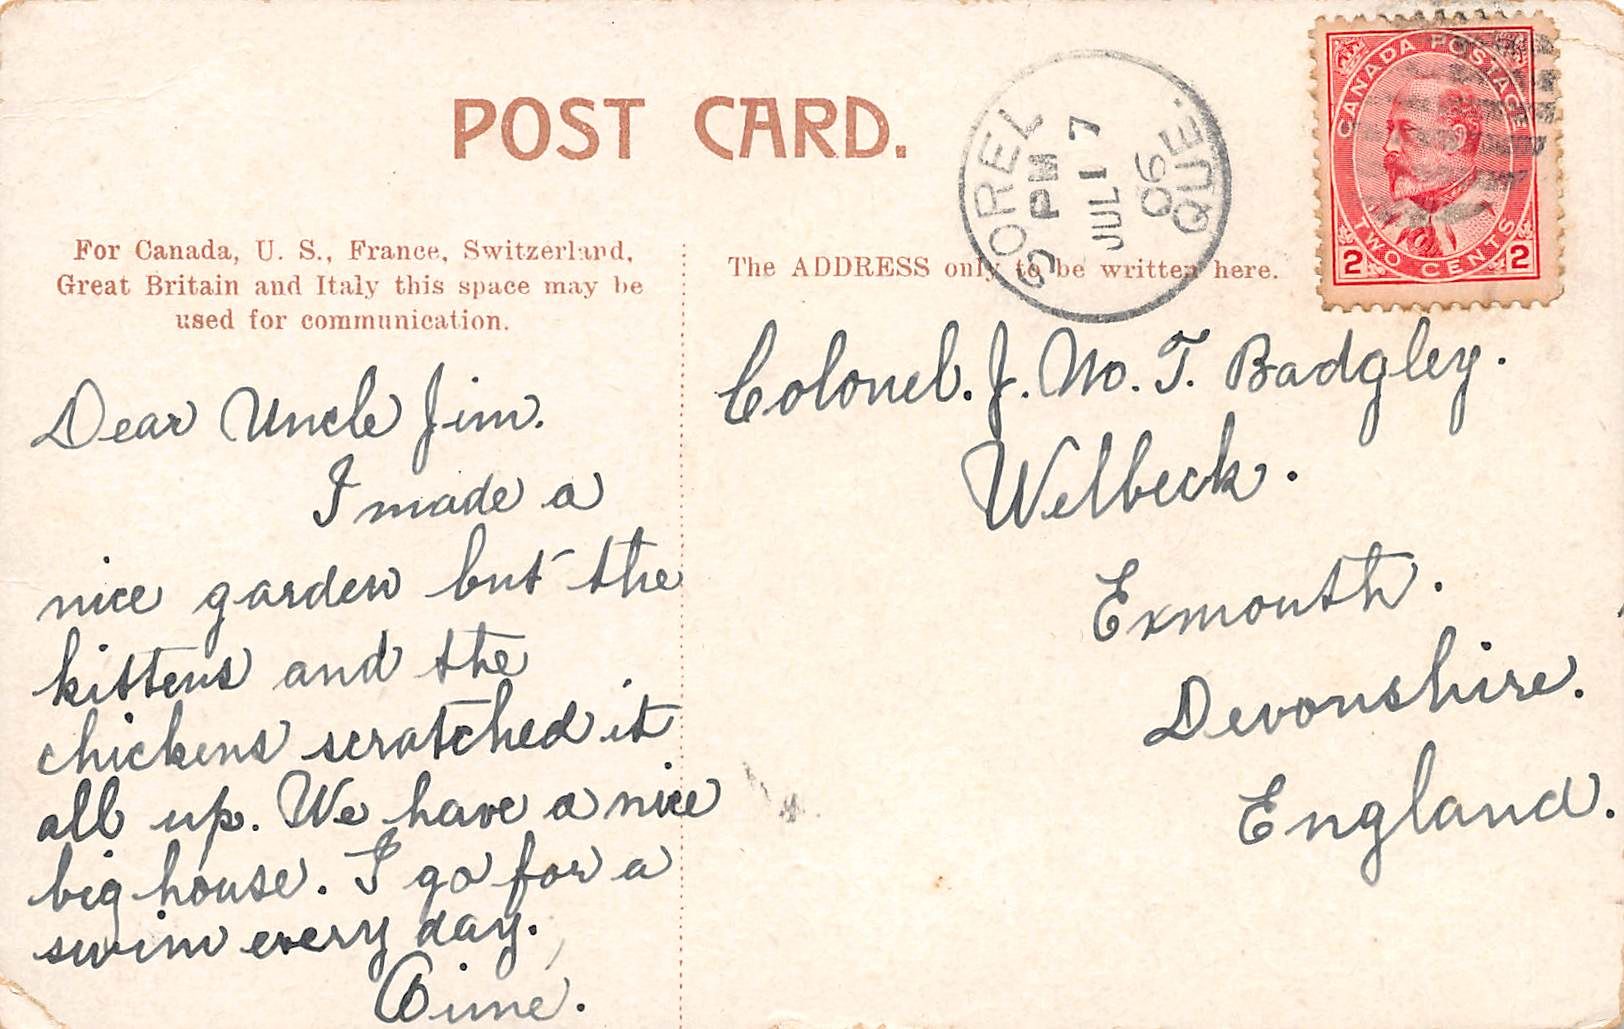 POST CARD.
SOREL
5 PM
JUL 17
06
QUE.
CANADA POSTAGE
TWO CENTS
2 2
For Canada, U. S., France, Switzerland,
Great Britain and Italy this space may be
used for communication.
The ADDRESS only to be written here.
Dear Uncle Jim.
I made a
nice garden but the
kittens and the
chickens scratched it
all up. We have a nice
big house. I go for a
swim every day.
Aimé.
Colonel. J. Mo. T. Badgley.
Welbeck.
Exmouth.
Devonshire.
England.